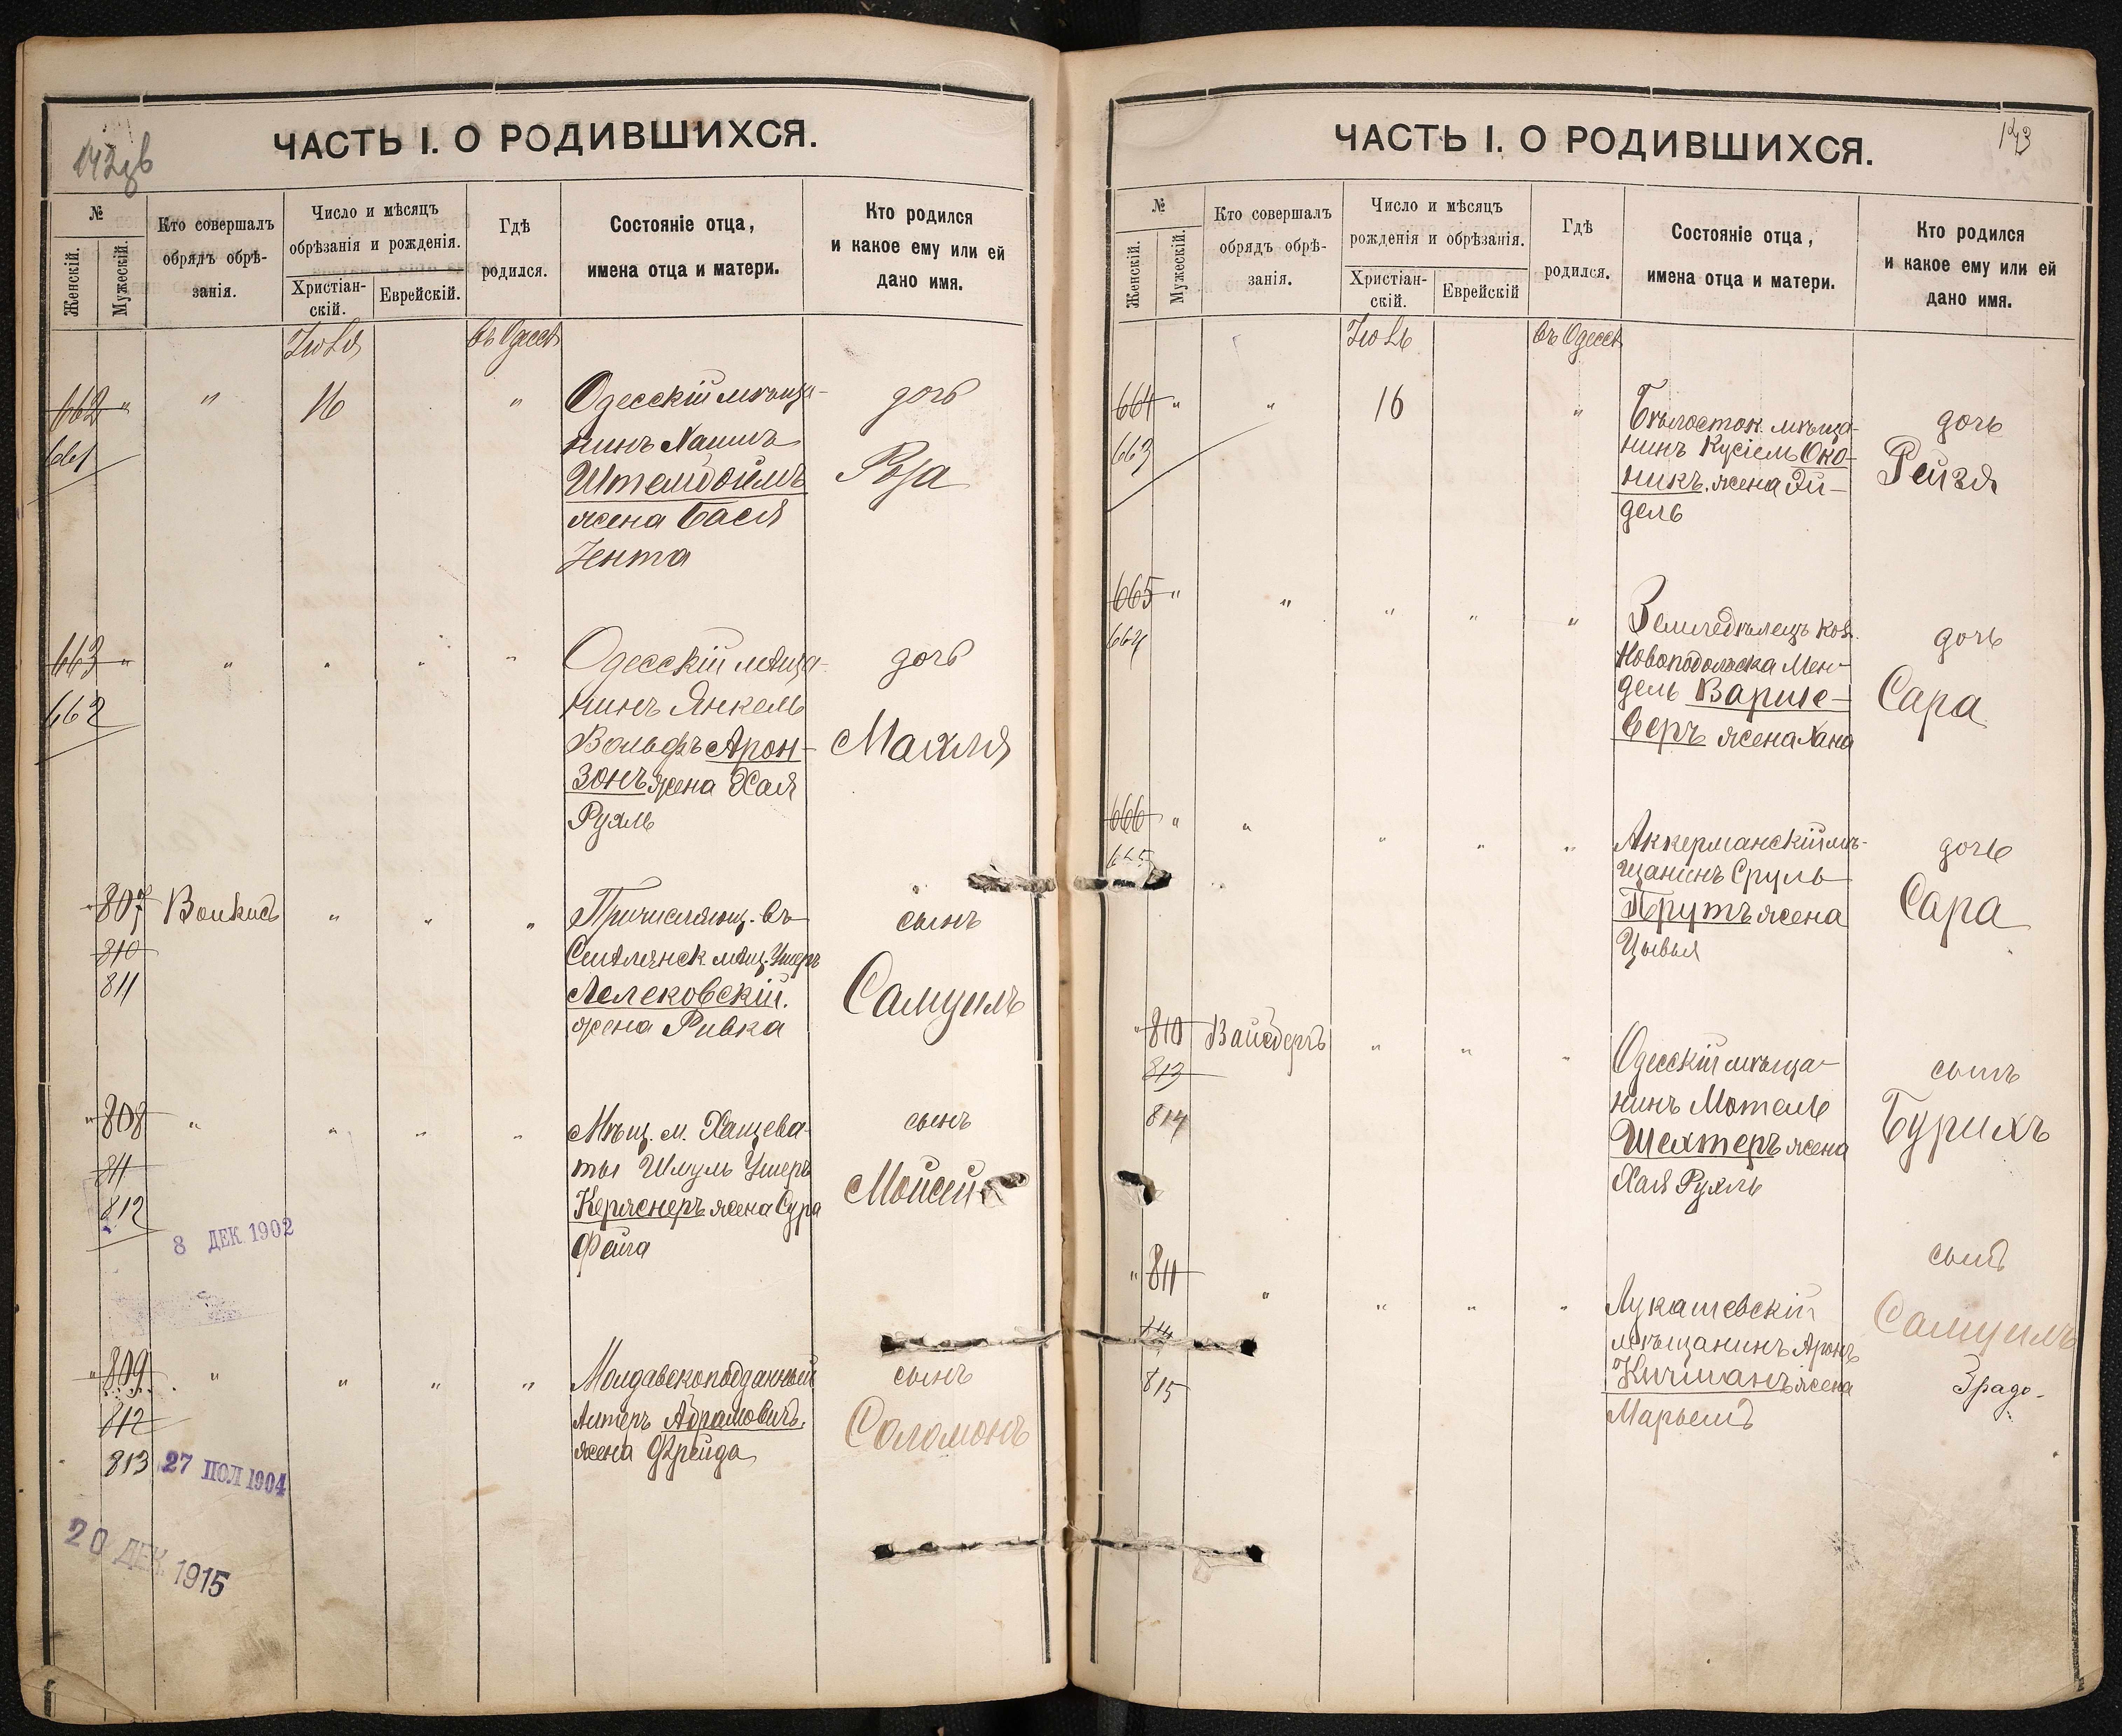 142об
ЧАСТЬ I. О РОДИВШИХСЯ.
№
Женскій.
Мужескій.
Кто совершалъ
обрядъ обрѣ-
занія.
Число и мѣсяцъ
обрѣзанія и рожденія.
Христіан-
скій.
Еврейскій.
Гдѣ
родился.
Состояніе отца,
имена отца и матери.
Кто родился
и какое ему или ей
дано имя.
Іюля
въ Одессѣ
662 " " 16 "
661
Одесскій мѣща-
нинъ Хаимъ
жена Бася
Ента
дочь
Роза
663 " " " " "
662
Одесскій мѣща-
нинъ Янкель
Вольфъ Арон-
зонъ жена Хая
Рухль
дочь
Махля
" 807 " " "
810
811
Причисляющ. въ
мѣщ. Ушеръ
Лелековскій.
жена Ривка
сынъ
Самуилъ
" 808 " " " "
811
812
8 ДЕК 1902
Мѣщ. м. Хащева-
ты Шмуль Ушеръ
жена Сура
Фейга
сынъ
Моисей
" 809 " " " "
812
813
27 ПОЛ 1904
20 ДЕК 1915
Молдавскоподданный
Алтеръ Абрамовичъ
жена Фрейда
сынъ
Соломонъ
143
ЧАСТЬ I. О РОДИВШИХСЯ.
№
Женскій.
Мужескій.
Кто совершалъ
обрядъ обрѣ-
занія.
Число и мѣсяцъ
рожденія и обрѣзанія.
Христіан-
скій.
Еврейскій
Гдѣ
родился.
Состояніе отца,
имена отца и матери.
Кто родился
и какое ему или ей
дано имя.
Іюль
въ Одессѣ
664 " " 16 "
663
Бѣлосток. мѣща-
нинъ Кусіель Око-
никъ. жена Эй-
дель
дочь
Рейзя
665 " " " " "
664
Земледѣлецъ кол.
Новоподольска Мен-
дель Варше-
веръ жена Хана
дочь
Сара
666 " " " " "
665
Аккерманскій мѣ-
щанинъ Сруль
Прутъ жена
Цывья
дочь
Сара
" 810 " " "
813
814
Одесскій мѣща-
нинъ Мотель
Шехтеръ жена
Хая Рухль
сынъ
Бурихъ
" 811 " " " "
814
815
Лукашевскій
мѣщанинъ Аронъ
Кичманъ жена
Марьемъ
сынъ
Самуилъ